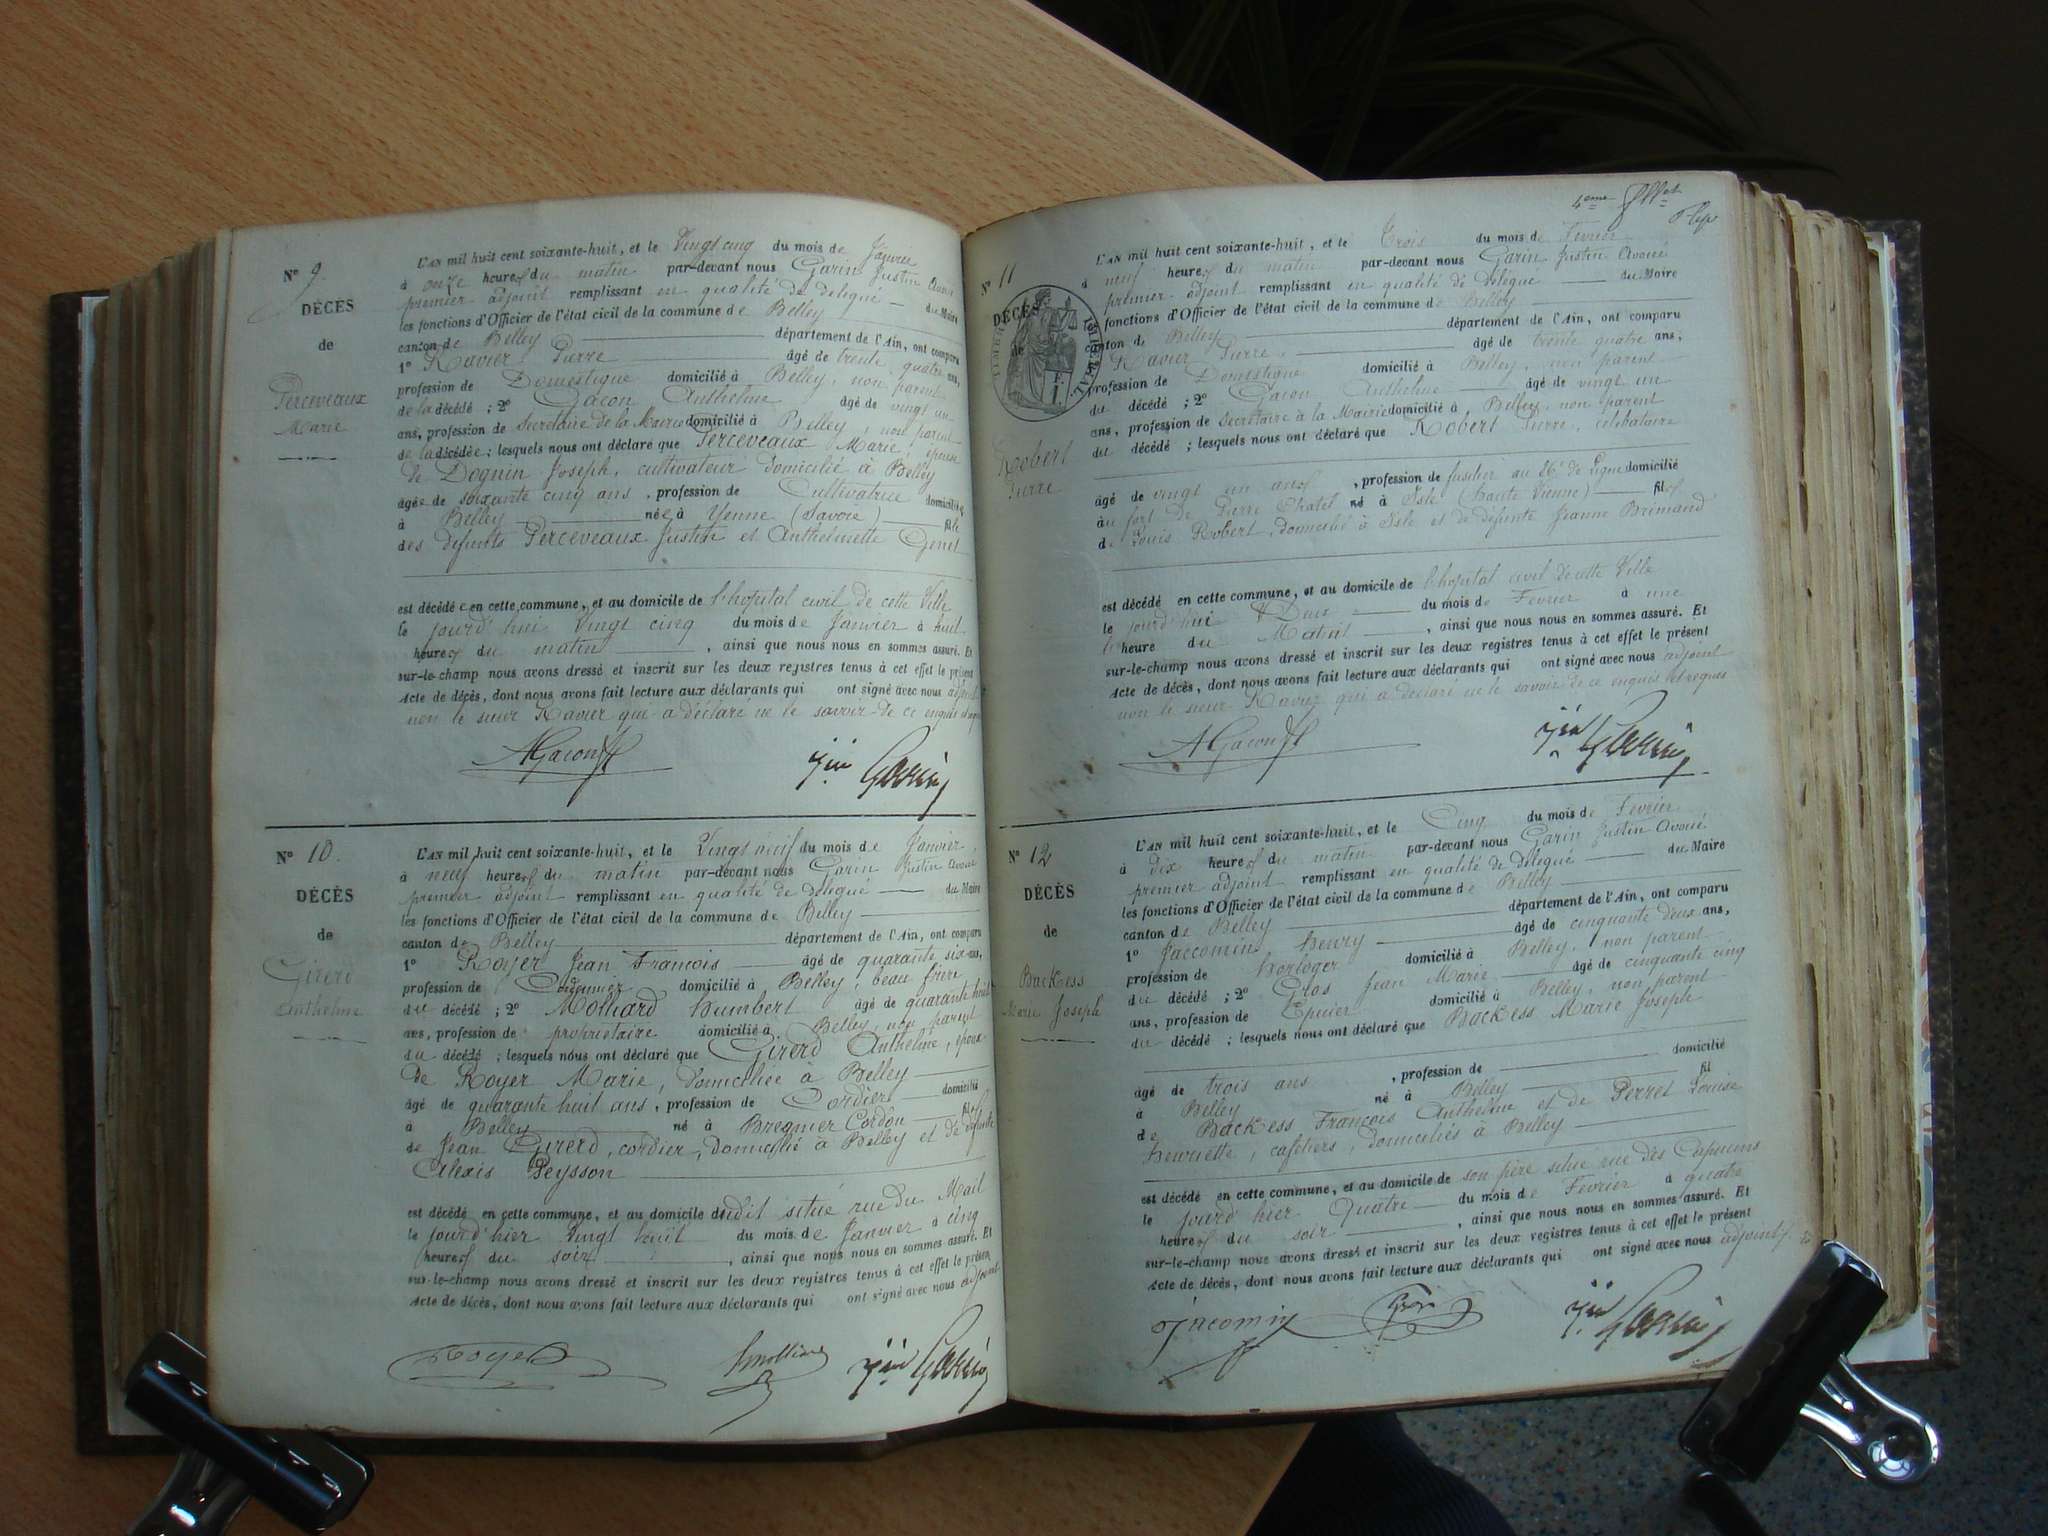 N° 9
DÉCÈS
de
Perceveaux
Marie
L'AN mil huit cent soixante-huit, et le Vingt cinq du mois de Janvier
à onze heures du matin par-devant nous Garin Justin Avoué
premier adjoint remplissant en qualité de délégué du Maire
les fonctions d'Officier de l'état civil de la commune de Belley
canton de Belley département de l'Ain, ont comparu
1° Ravier Pierre âgé de trente quatre ans,
profession de Domestique domicilié à Belley, non parent
de la décédé ; 2° Gacon Anthelme âgé de vingt un
ans, profession de Secrétaire de la Mairie domicilié à Belley, non parent
de la décédée ; lesquels nous ont déclaré que Perceveaux Marie, épouse
de Doguin Joseph, cultivateur domicilié à Belley
âgée de soixante cinq ans, profession de Cultivatrice domiciliée
à Belley née à Yenne (Savoie) fille
des défunts Perceveaux Justin et Anthelmette Genet
est décédée en cette commune, et au domicile de l'hopital civil de cette Ville
le jourd'hui Vingt cinq du mois de Janvier à huit
heures du matin, ainsi que nous nous en sommes assuré. Et
sur-le-champ nous avons dressé et inscrit sur les deux registres tenus à cet effet le présent
Acte de décès, dont nous avons fait lecture aux déclarants qui ont signé avec nous adjoint
non le sieur Ravier qui a déclaré ne le savoir de ce enquis et requis
AGacon
Jin Garin
N° 10.
DÉCÈS
de
Girerd
Anthelme
L'AN mil huit cent soixante-huit, et le Vingt neuf du mois de Janvier
à neuf heures du matin par-devant nous Garin Justin Avoué
premier adjoint remplissant en qualité de délégué du Maire
les fonctions d'Officier de l'état civil de la commune de Belley
canton de Belley département de l'Ain, ont comparu
1° Royer Jean François âgé de quarante six ans,
profession de Cordonnier domicilié à Belley, beau frère
du décédé ; 2° Molliard Humbert âgé de quarante huit
ans, profession de propriétaire domicilié à Belley, non parent
du décédé ; lesquels nous ont déclaré que Girerd Anthelme, époux
de Royer Marie, domiciliée à Belley
âgé de quarante huit ans, profession de Cordier domicilié
à Belley né à Bregnier Cordon fils
de Jean Girerd, cordier, domicilié à Belley et de défunte
Alexis Peysson
est décédé en cette commune, et au domicile dudit situé rue du Mail
le jourd'hier Vingt huit du mois de Janvier à cinq
heures du soir, ainsi que nous nous en sommes assuré. Et
sur-le-champ nous avons dressé et inscrit sur les deux registres tenus à cet effet le présent
Acte de décès, dont nous avons fait lecture aux déclarants qui ont signé avec nous adjoint
Royer
hmolliard
Jin Garin
4eme
N° 11
DÉCÈS
de
TIMBRE IMPÉRIAL
Robert
Pierre
L'AN mil huit cent soixante-huit, et le Trois du mois de Février
à neuf heures du matin par-devant nous Garin Justin Avoué
premier adjoint remplissant en qualité de Délégué du Maire
les fonctions d'Officier de l'état civil de la commune de Belley
canton de Belley département de l'Ain, ont comparu
Ravier Pierre, âgé de trente quatre ans,
profession de Domestique domicilié à Belley, non parent
du décédé ; 2° Gacon Anthelme âgé de vingt un
ans, profession de Secrétaire à la Mairie domicilié à Belley, non parent
du décédé ; lesquels nous ont déclaré que Robert Pierre, célibataire
âgé de vingt un ans, profession de fusilier au 86e de Ligne domicilié
au fort de Pierre Chatel né à Isle (Haute Vienne) fils
de Louis Robert, domicilié à Isle et de défunte Jeanne Brimand
est décédé en cette commune, et au domicile de l'hopital civil de cette Ville
le jourd'hui Deux du mois de Février à une
heure du Matin, ainsi que nous nous en sommes assuré. Et
sur-le-champ nous avons dressé et inscrit sur les deux registres tenus à cet effet le présent
Acte de décès, dont nous avons fait lecture aux déclarants qui ont signé avec nous adjoint
non le sieur Ravier qui a déclaré ne le savoir de ce enquis et requis
AGacon
Jin Garin
N° 12
DÉCÈS
de
Backess
Marie Joseph
L'AN mil huit cent soixante-huit, et le Cinq du mois de Février
à dix heures du matin par-devant nous Garin Justin Avoué
premier adjoint remplissant en qualité de délégué du Maire
les fonctions d'Officier de l'état civil de la commune de Belley
canton de Belley département de l'Ain, ont comparu
1° Jaccomin henry âgé de cinquante deux ans,
profession de horloger domicilié à Belley, non parent
du décédé ; 2° Gros Jean Marie âgé de cinquante cinq
ans, profession de Epicier domicilié à Belley, non parent
du décédé ; lesquels nous ont déclaré que Backess Marie Joseph
âgé de trois ans, profession de domicilié
à Belley né à Belley fil
de Backess François Anthelme et de Perret Louise
henriette, cafetiers, domiciliés à Belley
est décédé en cette commune, et au domicile de son père situé rue des Capucins
le jourd'hier Quatre du mois de Février à quatre
heures du soir, ainsi que nous nous en sommes assuré. Et
sur-le-champ nous avons dressé et inscrit sur les deux registres tenus à cet effet le présent
Acte de décès, dont nous avons fait lecture aux déclarants qui ont signé avec nous adjoint
Jacomin
Gros
Jin Garin